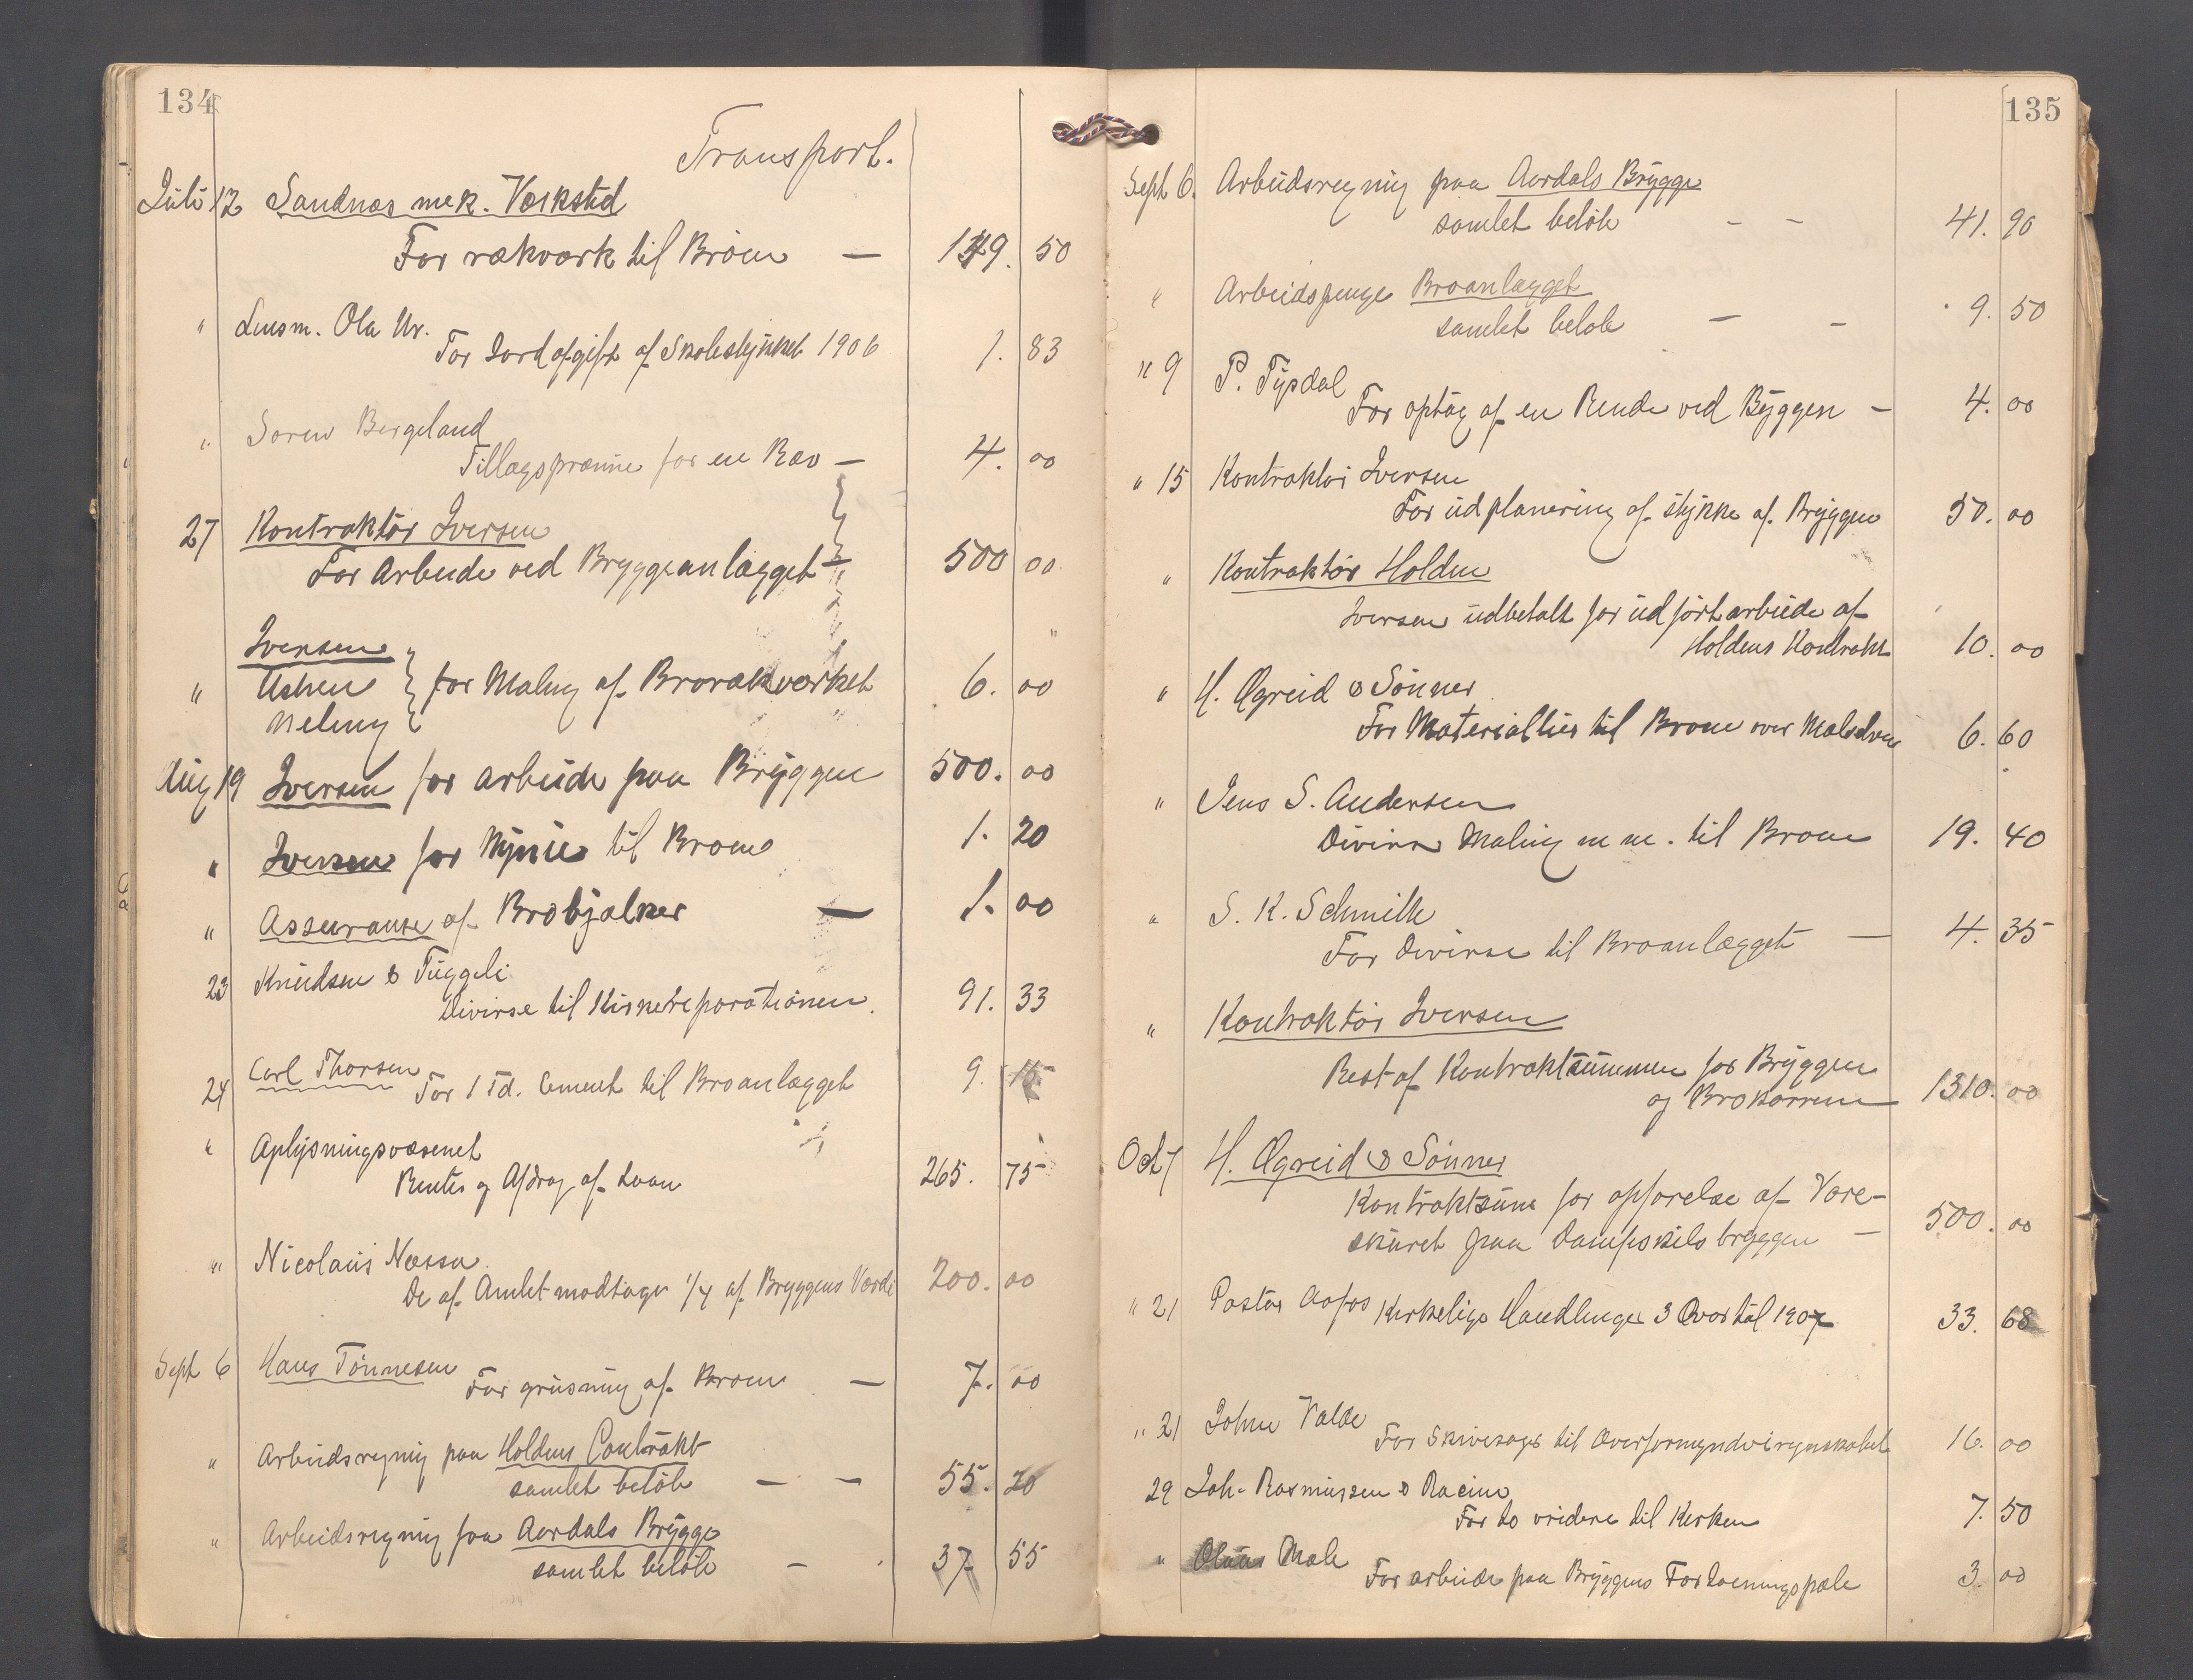 134
Transport.
Juli 12 Sandnæs mek. Værksted
For rækværk til Broen — 149. 50
" Lensm. Ola Ur.
For Jordafgift af Skolestykket 1906 1. 83
" Sören Bergeland
Tillægspræmie for en Ræv — 4. 00
27 Kontraktör Iversen
For Arbeide ved Bryggeanlægget — 500 00
Iversen
" for Maling af Brorækværket 6. 00
Meling
Aug 19 Iversen for arbeide paa Bryggen 500. 00
" Iversen for til Broen 1. 20
" Assuranse af Brobjælker — 1. 00
23 Knudsen & Tuggeli
Diverse til Kirkereparationen. 91. 33
24 Carl Thorsen For 1 Td. Cement til Broanlægget 9. 15
" Oplysningsvæsenet
Renter og Afdrag af Laan 265. 75
" Nicolaus Næssa
De af Amtet modtagne 1/4 af Bryggens Værdi 200. 00
Sept 6 Hans Tönnesen For grusning af Broen — 7. 00
" Arbeidsregning paa Holdens Contrakt
samlet belöb — — 55. 20
" Arbeidsregning paa Aardals Brygge
samlet belöb — 37 55
135
Sept 6. Arbeidsregning paa Aardals Brygge
samlet belöb — — 41. 90
" Arbeidspenge Broanlægget
samlet belöb — — 9. 50
" 9 P. Tysdal
For optag af en Rende ved Byggen — 4. 00
" 15 Kontraktör Iversen
For udplanering af stykke af Bryggen 50. 00
" Kontraktör Holden
Iversen udbetalt for udfört arbeide af
Holdens Kontrakt 10. 00
" H. Øgreid & Sönner
For Materialier til Broen over Mæleelven 6. 60
" Jens S. Andersen
Diverse Maling m m. til Broen 19. 40
" S. K. Schmith
For diverse til Broanlægget — 4. 35
" Kontraktör Iversen
Rest af Kontraktsummen for Bryggen
og Brokarrene 1310. 00
Oct 7 H. Øgreid & Sönner
Kontraktsum for opförelse af Vare-
skuret paa Dampskibsbryggen — 500. 00
" 21 Pastor Aafos Kirkelige Handlinger 3 Qvartal 1907 33. 68
" 21 Johne Valde For Skivesager til Overformynderiregnskabet 16. 00
29 Joh. Rasmussen & Racine
For to vridere til Kirken 7. 50
" Olaus Mæle For arbeide paa Bryggens Fortöiningspæle 3. 00